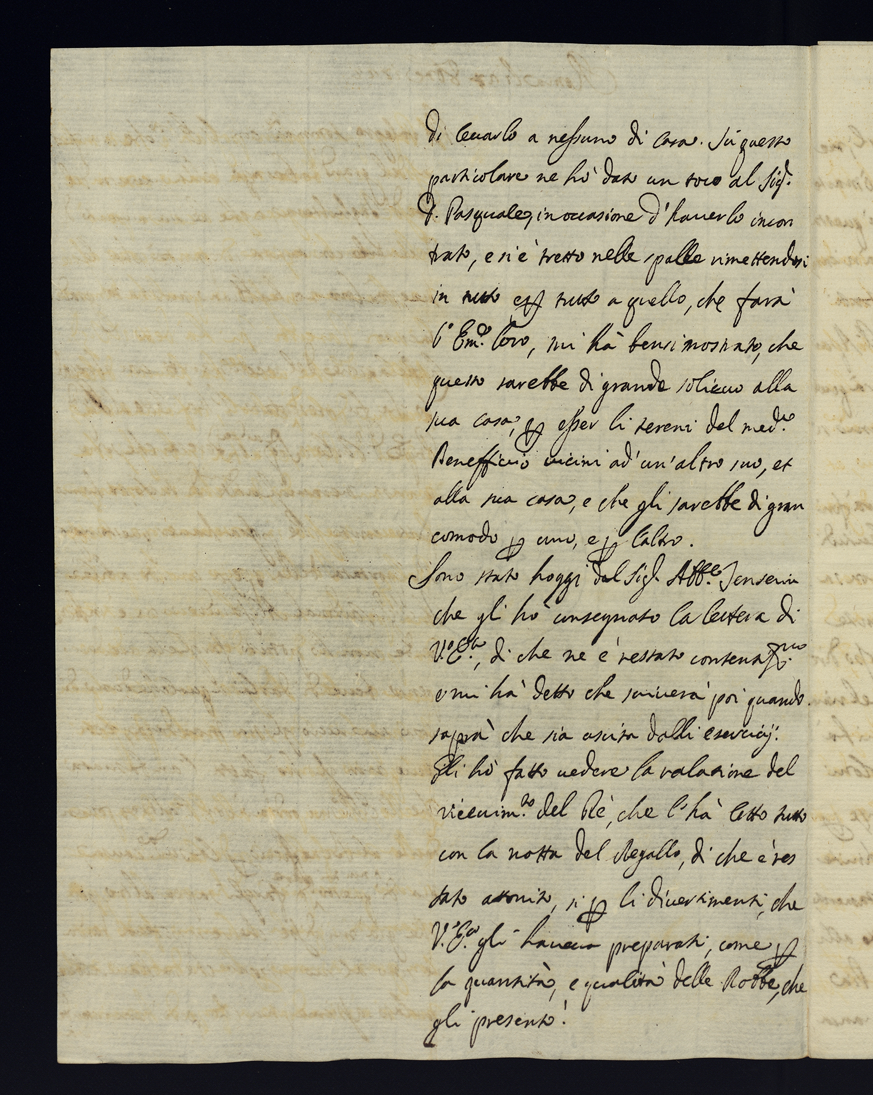 di leuarlo a nessuno di casa. Sù questo
particolare ne hò dato un toco al Sig.r
D. Pasquale, in occasione d'hauerlo incon
trato, e si è stretto nelle spalle rimettendosi
in tutto e p tutto a quello, che farà
l'Em.o loro, mi hà bensi mostrato, che
questo sarebbe di grande solieuo alla
sua casa, p esser li tereni del med.o
Benefficio uicini ad'un'altro suo, et
alla sua casa, e che gli sarebbe di gran
comodo p uno, e p l'altro.
Sono stato hoggi dal Sig.r Abb.e
che gli hò consegnato la lettera di
V.E., di che ne è restato contentiss.mo
e mi hà detto che scriuerà poi quando
saprà che sia uscita dalli esercicij.
Gli hò fatto uedere la relazione del
riceuim.to del Rè, che l'hà letto tutto
con la notta del Regallo, di che è res
tato attonito, si p li diuertimenti, che
V.E. gli haueua preparati, come p
la quantità, e qualità delle Robbe, che
gli presentò.